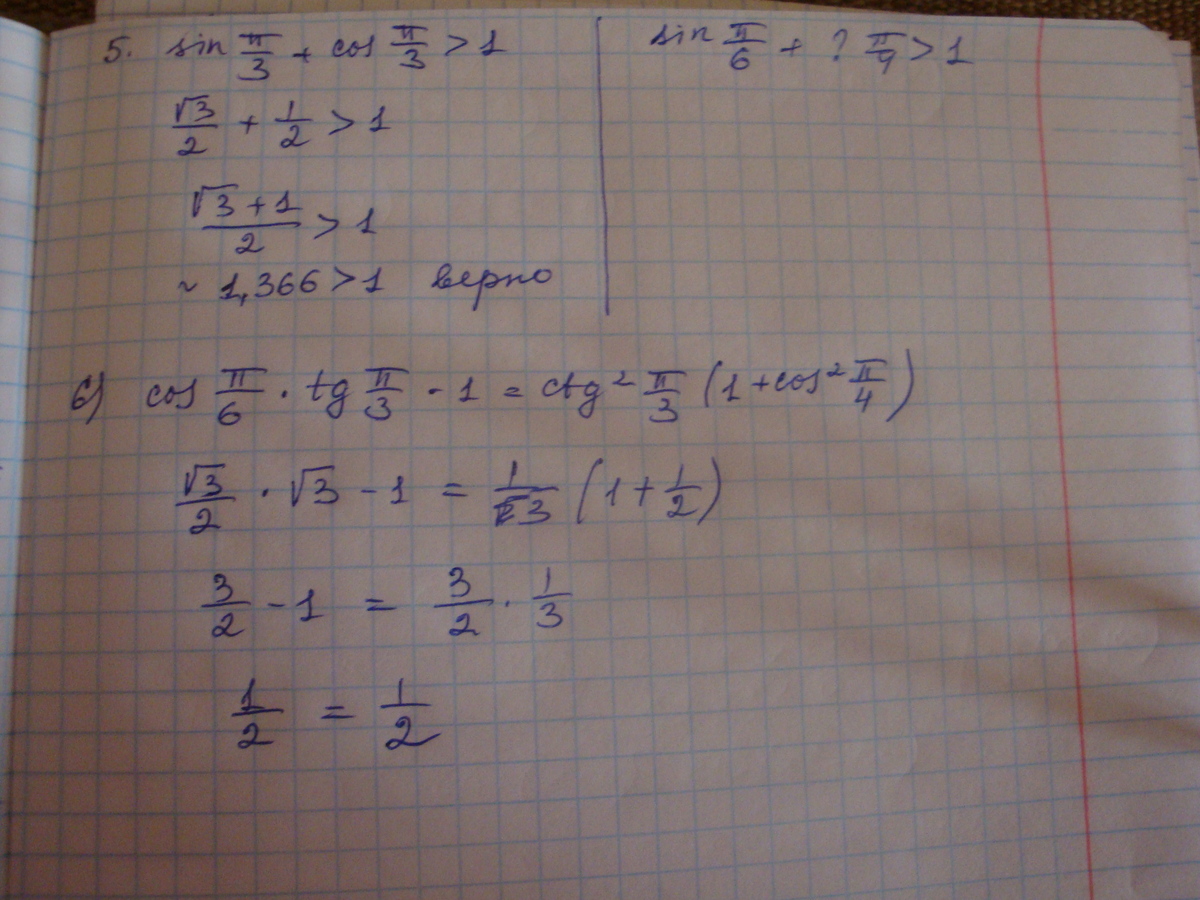 5. sin π/3 + cos π/3 > 1
√3/2 + 1/2 > 1
(√3 + 1)/2 > 1
~ 1,366 > 1 верно
sin π/6 + ? π/9 > 1
6) cos π/6 · tg π/3 - 1 = ctg² π/3 (1 + cos² π/4)
√3/2 · √3 - 1 = 1/3 (1 + 1/2)
3/2 - 1 = 3/2 · 1/3
1/2 = 1/2